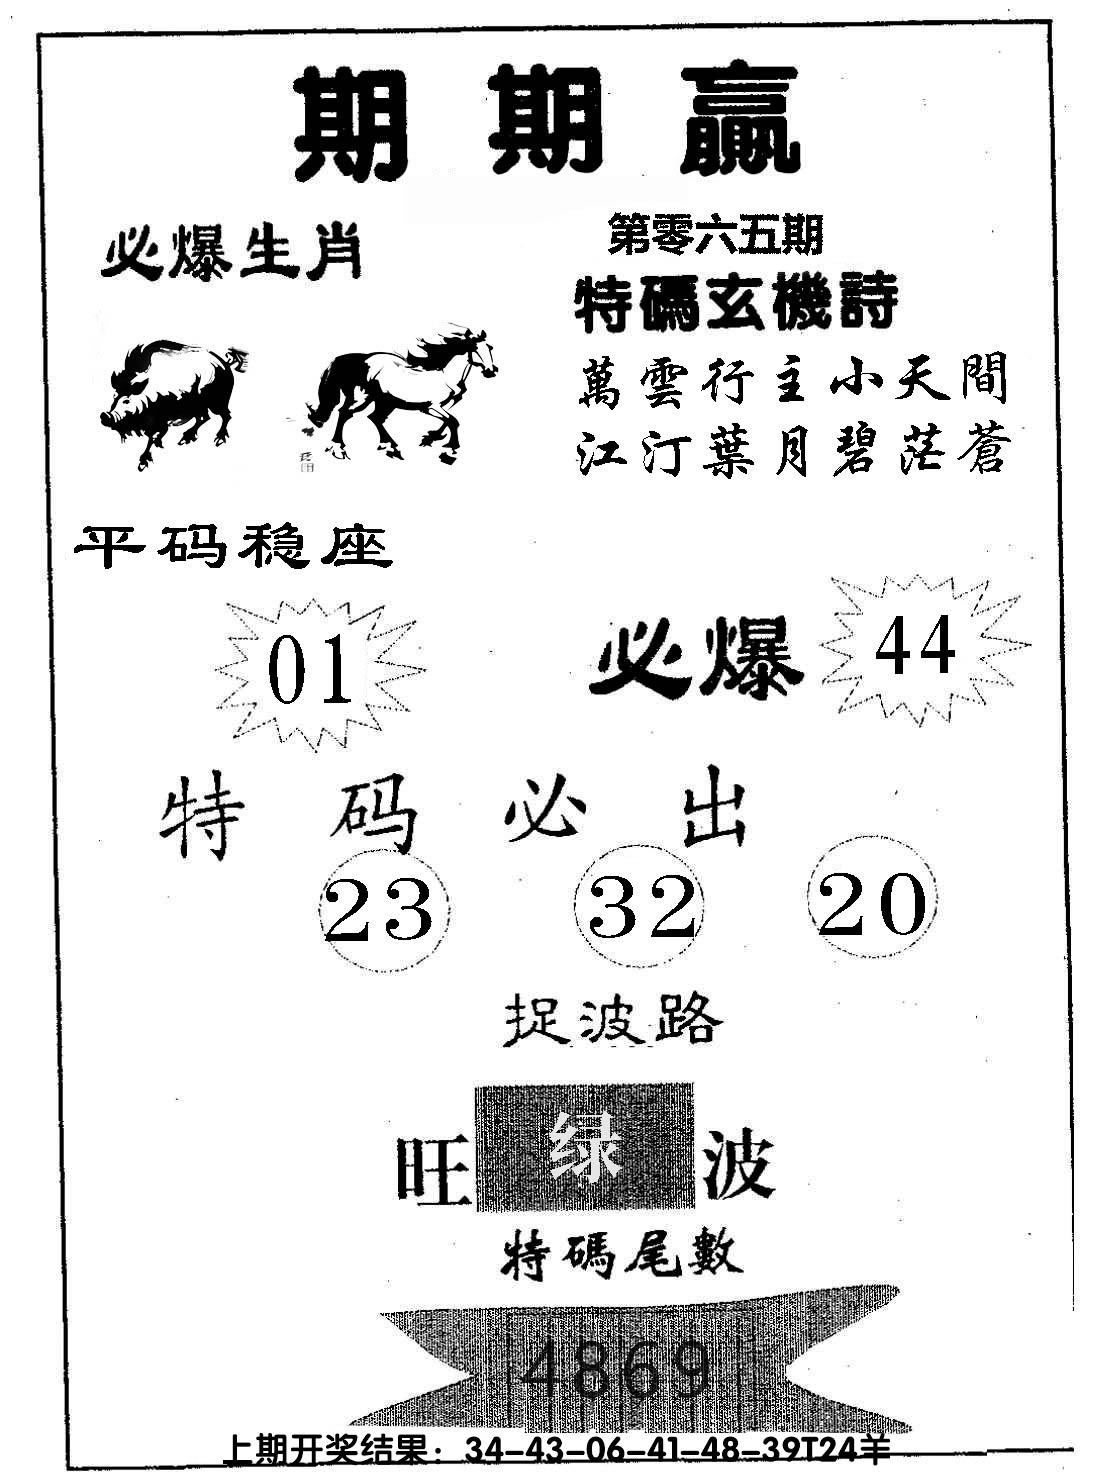 期期贏
必爆生肖
第零六五期
特碼玄機詩
萬雲行主小天間
江汀葉月碧茫蒼
平码稳座
01
必爆 44
特码必出
23 32 20
捉波路
旺 绿 波
特碼尾數
4869
上期开奖结果：34-43-06-41-48-39T24羊